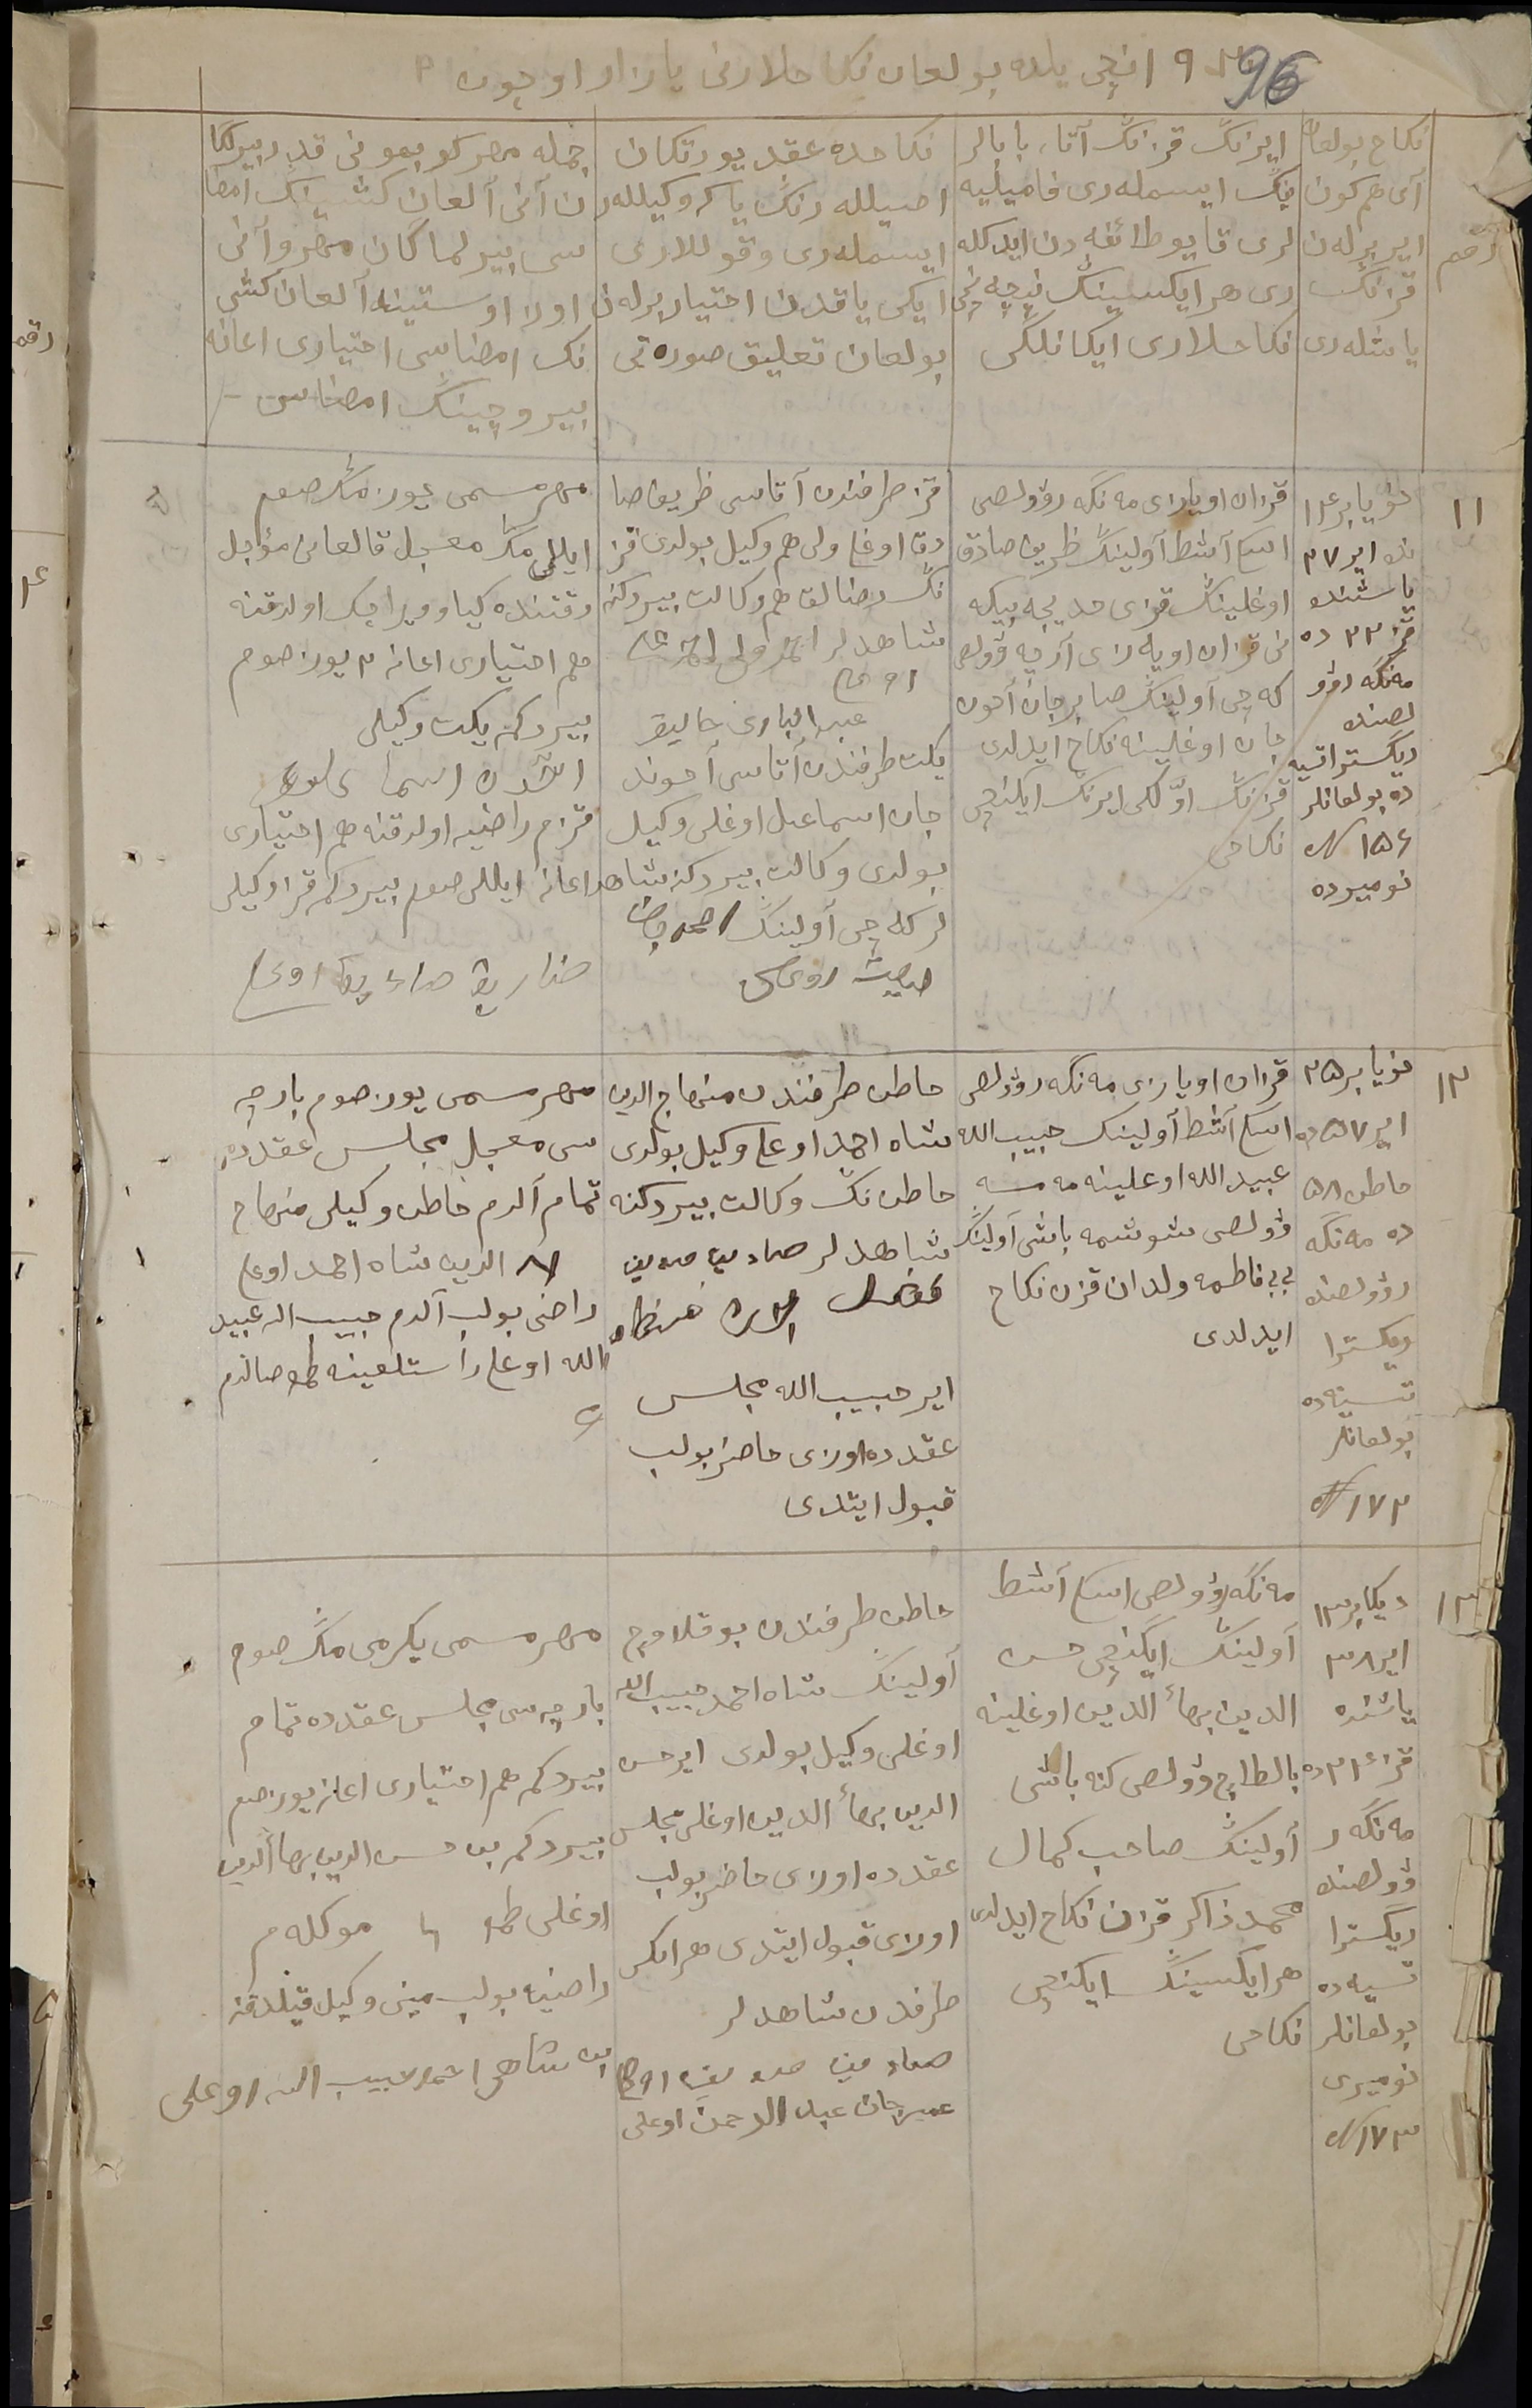 96
انچی یلده بولغان نکاحلارنی یازار اوچون
رقم
نکاح بولغان
آی هم کون
ایر برله ن
قزنڭ
یاشله ری
ایرنڭ قزنڭ آتا، بابالر
ینڭ ایسمله ری فامیلیه
لری قایو طائفه دن ایدکله
ری هر ایکسینڭ نیچه نچی
نکاحلاری ایکانلگی
نکاحده عقد یورتکان
اصیلله رنڭ یاکه وکیلله ر
ایسمله ری وقوللاری
ایکی یاقدن اختیار برله ن
بولغان تعلیق صوره تی
جمله مهر کوبمونی قدر بیرلگا
ن آنی آلغان کشینڭ امضا
سی بیرلماگان مهر و آنی
اوز اوستینه آلغان کشی
نڭ امضاسی اختیاری اعانه
بیروچینڭ امضاسی
۱۱
نویابر ۱۴
نده ایر ۲۷
یاشنده
قز ۲۲ ده
مه نگه رؤو
لصنده
ریگستراتسیه
ده بولغانلر
۱۵۶ №
نومیرده
قزان اویازی مه نگه رؤولصی
اسکی آشط آولینڭ ظریف صادق
اوغلینڭ قزی خدیجه بیکه
نی قزان اویه زی آرچه وؤلصی
که چی آولینڭ صابرجان آخون
جان اوغلینه نکاح ایدلدی
قزنڭ اوّلگی ایرنڭ ایکنچی
نکاحی
قز طرفندن آتاسی ظریف صا
دق اوغلی ولی هم وکیل بولدی قز
نڭ رضالق هم وکالت بیردکنه
شاهدلر
عبد الباری
یکت طرفندن آتاسی آخوند
جان اسماعیل اوغلی وکیل
بولدی وکالت بیردکنه شاهد
لر که چی آولینڭ احمدجان
مهر مسمی یوز مڭ صوم
ایللی مڭ معجل قالغانی مؤجل
وقتنده کیاو ویراجک اولدقنه
هم اختیاری اعانه ۲ یوز صوم
بیردکم یکت وکیلی
قزم راضیه اولدقنه هم اختیاری
اعانه ایللی صوم بیردکم قز وکیلی
ظریف صادیق اوغلی
۱۲
نویابر ۲۵
ایر ۵۷ ده
خاطن ۵۸
ده مه نگه
رؤولصنده
ریگسترا
تسیه ده
بولغانلر
۱۷۲ №
قزان اویازی مه نگه رؤولصی
اسکی آشط آولینڭ حبیب الله
عبید الله اوغلینه مه مسه
وؤلصی شوشمه باشی آولینڭ
بی بی فاطمه ولدان قزن نکاح
ایدلدی
خاطن طرفندن منهاج الدین
شاه احمد اوغلی وکیل بولدی
خاطن نڭ وکالت بیردکنه
شاهدلر
ایر حبیب الله مجلس
عقدده اوزی حاضر بولب
قبول ایتدی
مهر مسمی یوز صوم بارچه
سی معجل مجلس عقدده
تمام آلدم خاطن وکیلی منهاج
الدین شاه احمد اوغلی
راضی بولب آلدم حبیب الله عبید
الله اوغلی
۱۳
دیکابر ۱۳
ایر ۳۸
یاشنده
قز ۲۱ ده
مه نگه ر
وؤلصنده
ریگسترا
تسیه ده
بولغانلر
نومیری
۱۷۳ №
مه نگه رؤولصی اسکی آشط
آولینڭ ایکنچی حسن
الدین بهاء الدین اوغلینه
بالطاچ وؤلصی کنه باشی
آولینڭ صاحب کمال
محمد ذاکر قزن نکاح ایدلدی
هر ایکسینڭ ایکنچی
نکاحی
خاطن طرفندن بوقلاوچ
آولینڭ شاه احمد حبیب الله
اوغلی وکیل بولدی ایر حسن
الدین بهاء الدین اوغلی مجلس
عقدده اوزی حاضر بولب
اوزی قبول ایتدی هر ایکی
طرفدن شاهدلر
عبد الرحمن اوغلی
مهر مسمی یکرمی مڭ صوم
بارچه سی مجلس عقدده تمام
بیردکم هم اختیاری اعانه یوز صوم
بیردکم بن حسن الدین بهاء الدین
اوغلی موکله م
راضیه بولب مینی وکیل قیلدقنه
شاهی احمد حبیب الله اوغلی